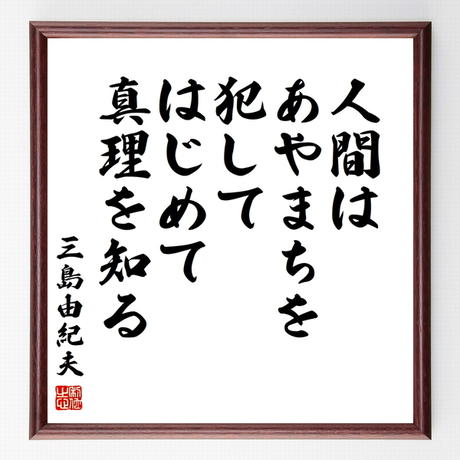 人間は
あやまちを
犯して
はじめて
真理を知る
三島由紀夫